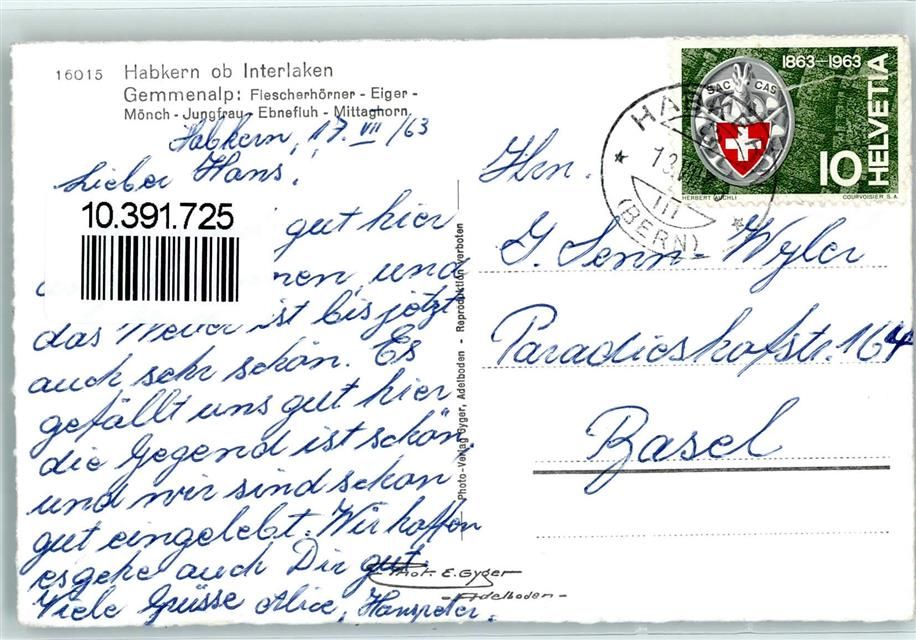 16015 Habkern ob Interlaken
Gemmenalp: Fiescherhörner - Eiger -
Mönch - Jungfrau - Ebnefluh - Mittaghorn
Habkern, 17. VII /63
Lieber Hans,
10.391.725
gut hier
und
das ist bis jetzt
auch sehr schön. Es
gefällt uns gut hier
die Gegend ist schön,
und wir sind schon
gut eingelebt. Wir hoffen
es gehe auch Dir gut.
Viele Grüsse Alice, Hanspeter.
Photo-Verlag Gyger, Adelboden - Reproduktion verboten
Phot. E. Gyger
- Adelboden -
1863-1963
SAC CAS
HELVETIA
10
HERBERT AUCHLI
COURVOISIER S.A.
(BERN)
Hrn.
J. Senn-Wyler
Paradieshofstr. 164
Basel